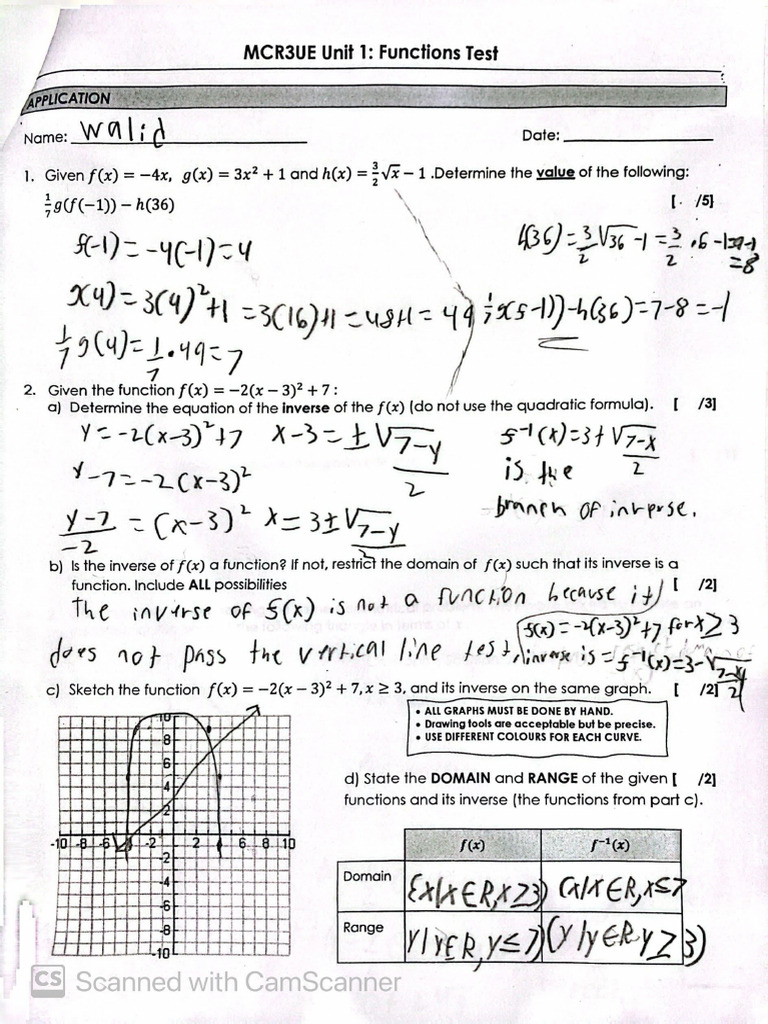 MCR3UE Unit 1: Functions Test
APPLICATION
Name: walid Date:
1. Given f(x) = −4x, g(x) = 3x² + 1 and h(x) = 3/2 √x − 1 .Determine the value of the following:
1/7 g(f(−1)) − h(36) [ /5]
f(-1) = -4(-1) = 4
x(4) = 3(4)²+1 = 3(16)+1 = 48+1 = 49
1/7 g(4) = 1/7 • 49 = 7
h(36) = 3/2 √36 -1 = 3/2 • 6 -1 = 9-1
= 8
1/7 x(f-1)) - h(36) = 7-8 = -1
2. Given the function f(x) = −2(x − 3)² + 7 :
a) Determine the equation of the inverse of the f(x) (do not use the quadratic formula). [ /3]
y = -2(x-3)²+7
y-7 = -2(x-3)²
y-7/-2 = (x-3)²
x-3 = ±√7-y/2
x = 3±√7-y/2
f⁻¹(x) = 3+√7-x/2
is the
branch of inverse.
b) Is the inverse of f(x) a function? If not, restrict the domain of f(x) such that its inverse is a
function. Include ALL possibilities [ /2]
The inverse of f(x) is not a function because it
does not pass the vertical line test,
f(x) = -2(x-3)²+7 for x ≥ 3
inverse is = f⁻¹(x) = 3-√7-x/2
c) Sketch the function f(x) = −2(x − 3)² + 7, x ≥ 3, and its inverse on the same graph. [ /2]
• ALL GRAPHS MUST BE DONE BY HAND.
• Drawing tools are acceptable but be precise.
• USE DIFFERENT COLOURS FOR EACH CURVE.
10
8
6
4
2
-10 -8 -6 -2 2 6 8 10
-2
-4
-6
-8
-10
d) State the DOMAIN and RANGE of the given [ /2]
functions and its inverse (the functions from part c).
f(x) f⁻¹(x)
Domain {x|x∈R, x≥3) (x/x∈R, x≤7
Range y|y∈R, y≤7) (y|y∈R y≥3)
CS Scanned with CamScanner